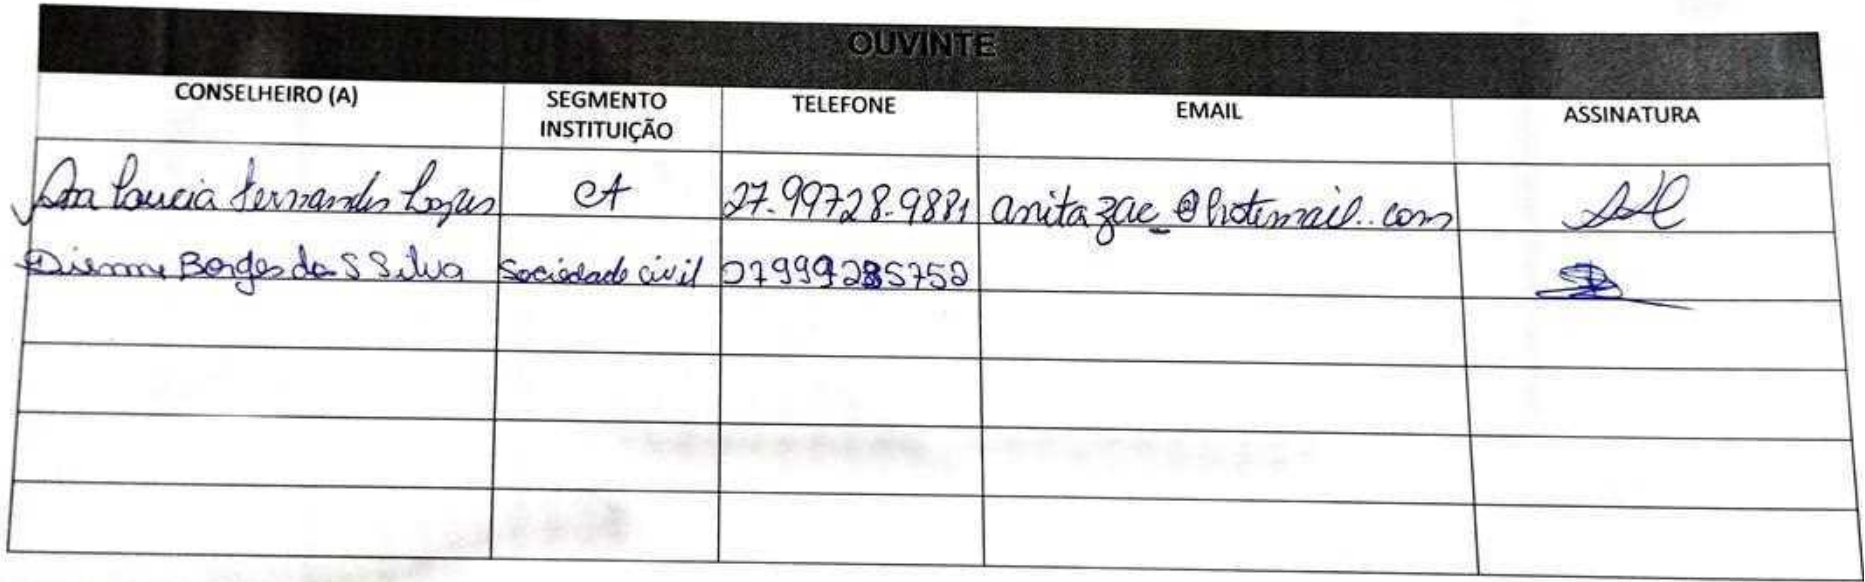 OUVINTE
CONSELHEIRO (A) SEGMENTO INSTITUIÇÃO TELEFONE EMAIL ASSINATURA
Fernandes 27.99728.9881 anitazae_@hotmail.com
Borges da S Silva Sociedade civil 27999285752